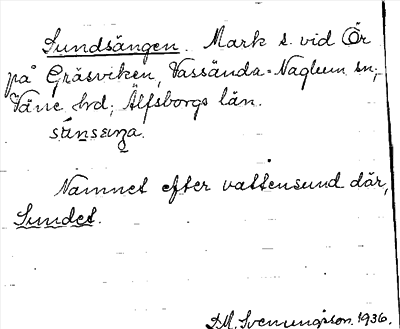 Sundsängen. Mark s. vid Ör
på Gräsviken, Vassända-Naglum sn,
Väne hrd, Älfsborgs län.
Namnet efter vattensund där,
Sundet.
D.M. Svenningsson. 1936.